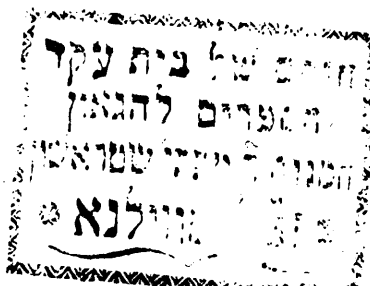 חותם של בית עקד
הספרים להגאון
המנוח ר' שטראשון
ווילנא